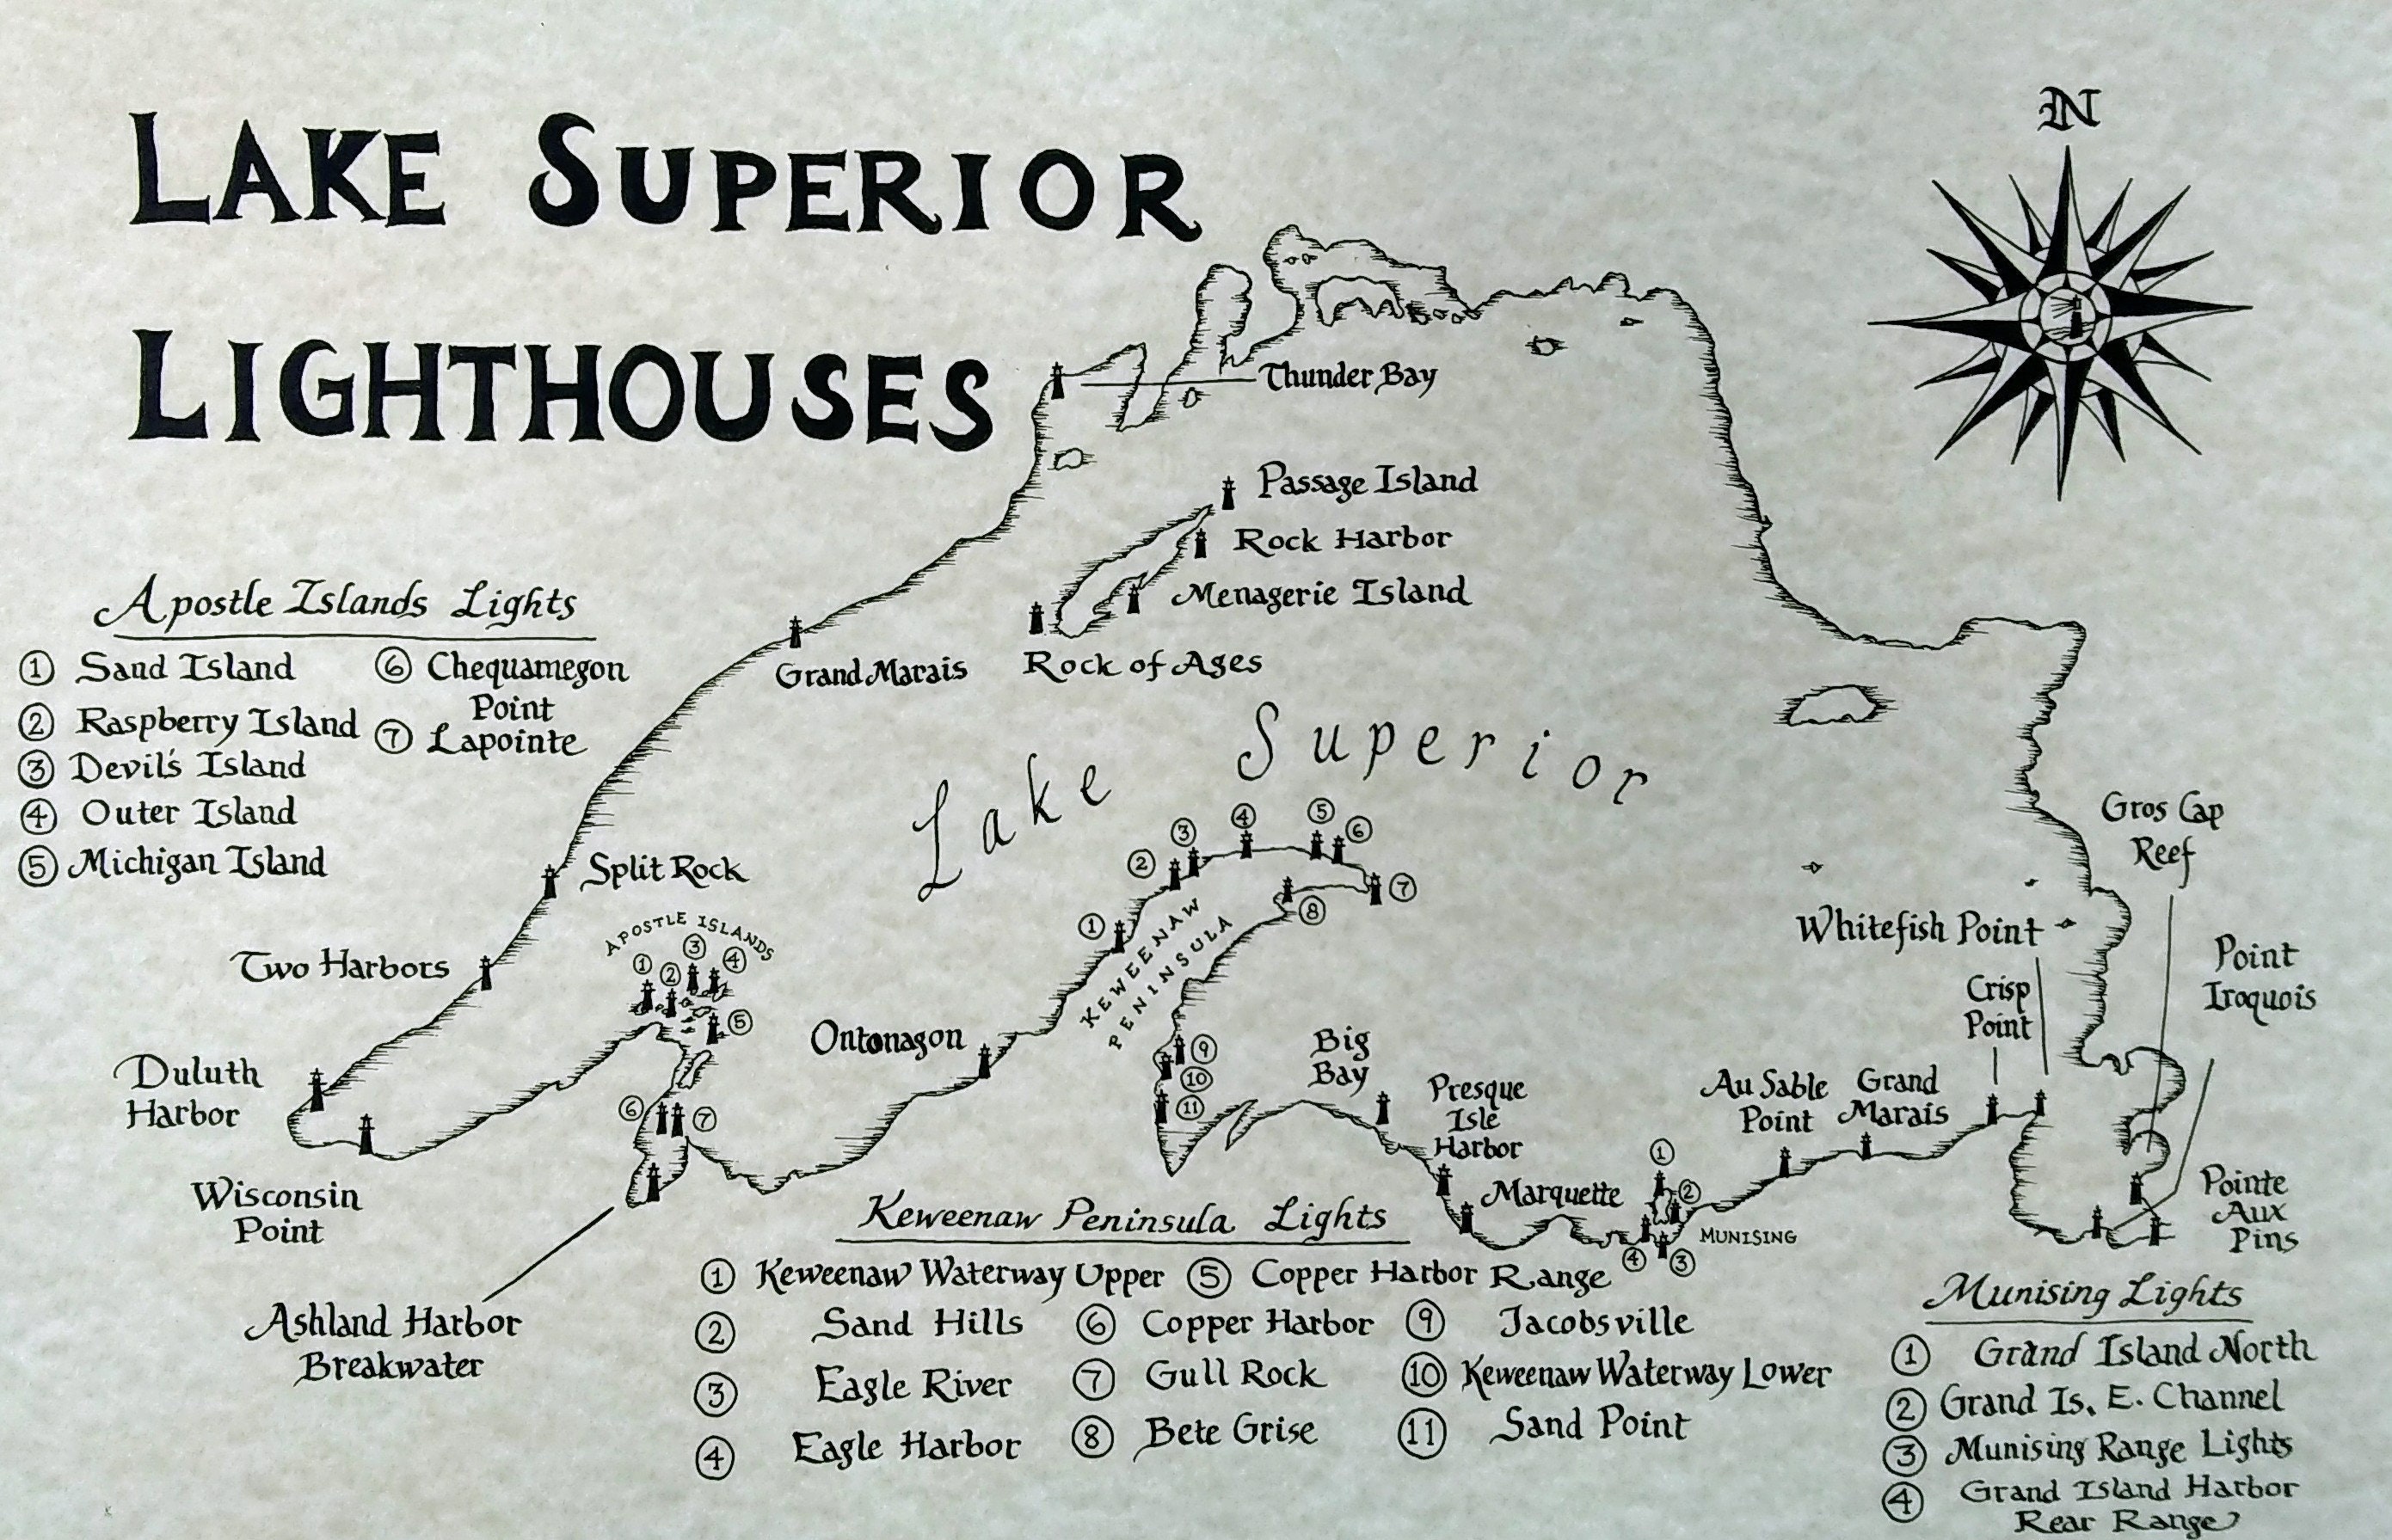 LAKE SUPERIOR
LIGHTHOUSES
N
Thunder Bay
Passage Island
Rock Harbor
Menagerie Island
Rock of Ages
Grand Marais
Apostle Islands Lights
① Sand Island
② Raspberry Island
③ Devil's Island
④ Outer Island
⑤ Michigan Island
⑥ Chequamegon
Point
⑦ Lapointe
Lake Superior
Split Rock
Two Harbors
Duluth
Harbor
Wisconsin
Point
Ashland Harbor
Breakwater
APOSTLE ISLANDS
①
②
③
④
⑤
⑥
⑦
Ontonagon
KEWEENAW
PENINSULA
①
②
③
④
⑤
⑥
⑦
⑧
⑨
⑩
⑪
Big
Bay
Presque
Isle
Harbor
Marquette
①
②
③
④
MUNISING
Au Sable
Point
Grand
Marais
Crisp
Point
Whitefish Point
Gros Cap
Reef
Point
Iroquois
Pointe
Aux
Pins
Keweenaw Peninsula Lights
① Keweenaw Waterway Upper
② Sand Hills
③ Eagle River
④ Eagle Harbor
⑤ Copper Harbor Range
⑥ Copper Harbor
⑦ Gull Rock
⑧ Bete Grise
⑨ Jacobsville
⑩ Keweenaw Waterway Lower
⑪ Sand Point
Munising Lights
① Grand Island North
② Grand Is. E. Channel
③ Munising Range Lights
④ Grand Island Harbor
Rear Range